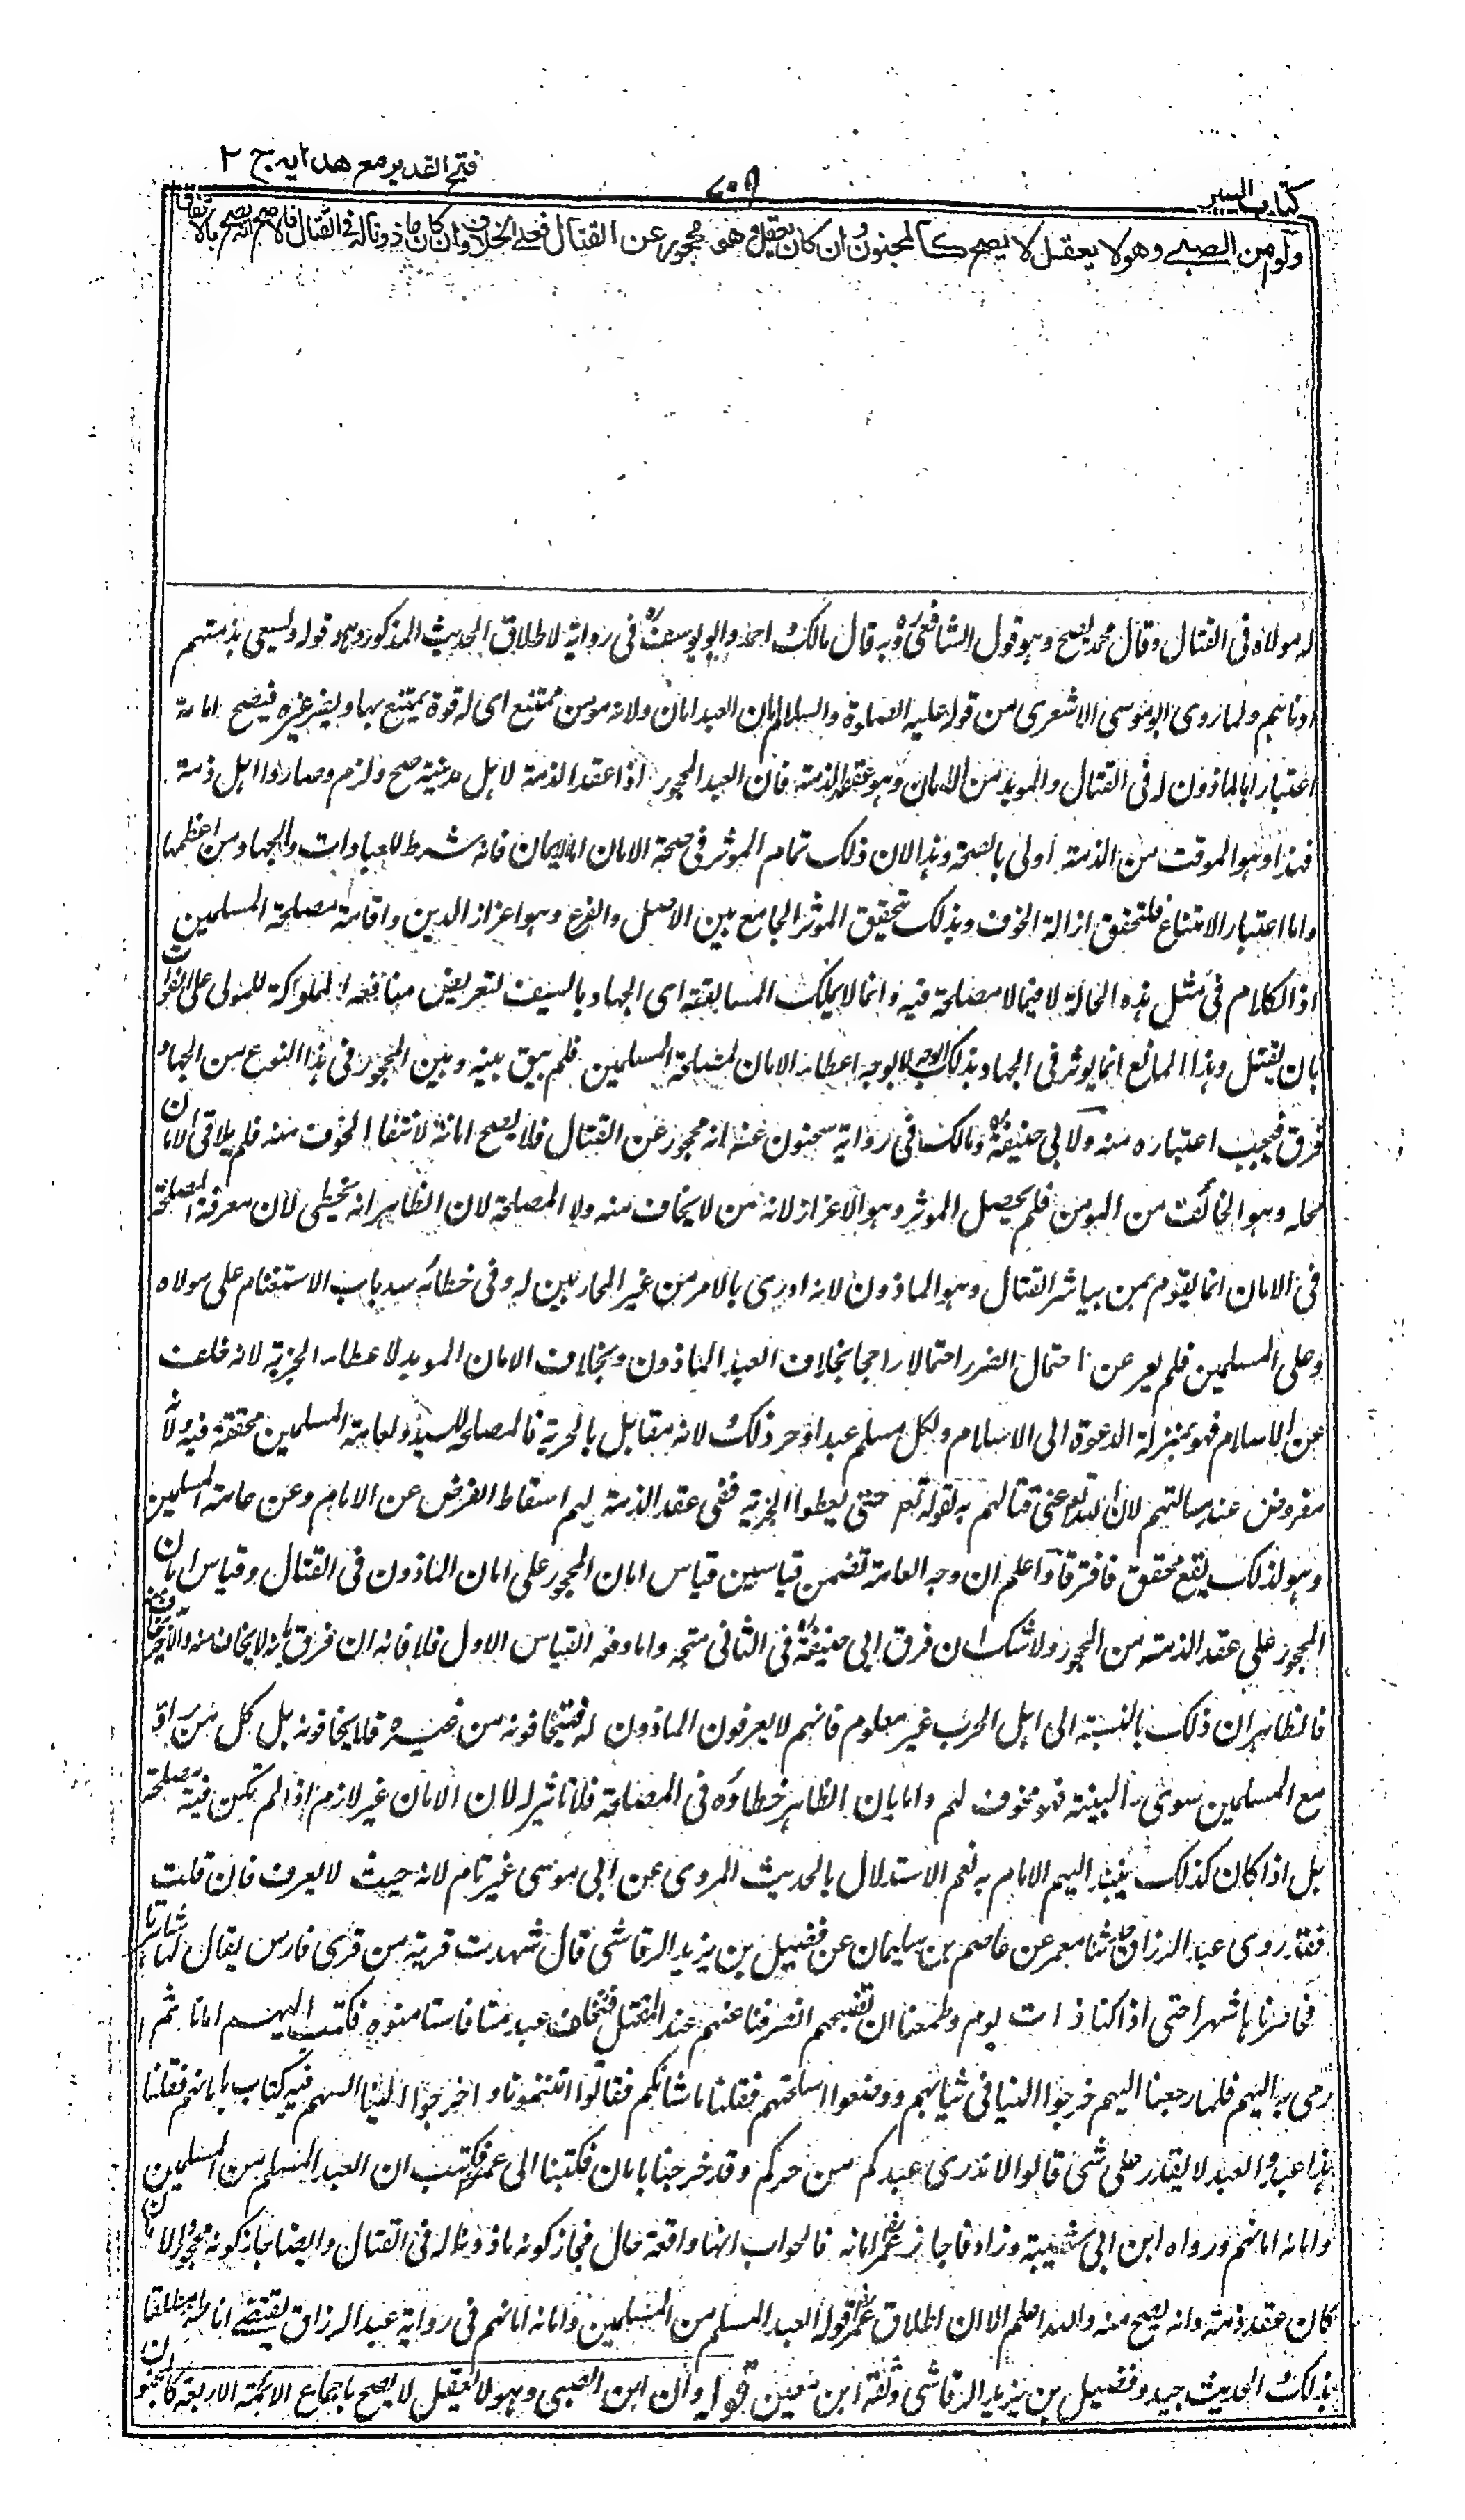 كتاب السير
فتح القدير مع هدايه ج ٢
ولو امن الصبي وهو لا يعقل لا يصح كالمجنون وان كان يعقل وهو محجور عن القتال فعلى الخلاف وان كان ماذونا له في القتال فالاصح انه يصح بالاتفاق
له مولاه فى القتال وقال محمد يصح وهو قول الشافعى وبه قال مالك واحمد وابو يوسف فى رواية لاطلاق الحديث المذكور وهو قوله ويسعى بذمتهم
ادناهم ولما روى ابو موسى الاشعرى من قوله عليه الصلوة والسلام امان العبد امان ولانه مومن ممتنع اى له قوة يمتنع بها ويضر غيره فيصح امانه
اعتبارا بالماذون له فى القتال والموبد من الامان وهو عقد الذمة فان العبد المحجور اذا عقد الذمة لاهل مدينة صح ولزم وصاروا اهل ذمة
فهذا وهو الموقت من الذمة اولى بالصحة وهذا لان ذلك تمام الموثر فى صحة الامان اما الايمان فانه شرط للعبادات والجهاد من اعظمها
واما اعتبار الامتناع فلتحقق ازالة الخوف وبذلك تحقيق الموثر الجامع بين الاصل والفرع وهو اعزاز الدين واقامة مصلحة المسلمين
اذ الكلام فى مثل هذه الحالة لا فيما لا مصلحة فيه وانما لا يملك المسايفة اى الجهاد بالسيف لتعريض منافعه المملوكة للمولى على الفوات
بان يقتل وهذا المانع انما يوثر فى الجهاد بذلك الوجه لا بوجه اعطاء الامان لمصلحة المسلمين فلم يبق بينه وبين المحجور فى هذا النوع من الجهاد
فرق فيجب اعتباره منه ولابى حنيفة ومالك فى رواية سحنون عنه انه محجور عن القتال فلا يصح امانه لانتفاء الخوف منه فلم يلاقى الامان
محله وهو الخائف من المومن فلم يحصل الموثر وهو الاعزاز لانه ممن لا يخاف منه ولا المصلحة لان الظاهر انه يخطى لان معرفة المصلحة
فى الامان انما يقوم بمن يباشر القتال وهو الماذون لانه ادرى بالامر من غير المحاربين له وفى خطائه سد باب الاستغنام على مولاه
وعلى المسلمين فلم يعر عن احتمال الضرر احتمالا راجحا بخلاف العبد الماذون وبخلاف الامان الموبد لاعطاء الجزية لانه خلف
عن الاسلام فهو بمنزلة الدعوة الى الاسلام ولكل مسلم عبد او حر ذلك لانه مقابل بالجزية فالمصلحة للسيد ولعامة المسلمين محققة فيه ولانه
مفروض عند مسالتهم لان الله تعالى غيى قتالهم به لقوله تعم حتى يعطوا الجزية ففى عقد الذمة لهم اسقاط الفرض عن الامام وعن عامة المسلمين
وهو لذلك يقع محقق فافترقا واعلم ان وجه العامة تضمن قياسين قياس امان المحجور على امان الماذون فى القتال وقياس امان
المحجور على عقد الذمة من المحجور ولا شك ان فرق ابى حنيفة فى الثانى متجه واما دفعه القياس الاول فلا فانه ان فرق بانه لا يخاف منه والآخر يخاف منه
فالظاهر ان ذلك بالنسبة الى اهل الحرب غير معلوم فانهم لا يعرفون الماذون له فيخافونه من غيره فلا يخافونه بل كل من راوه
مع المسلمين سوى البينة فهو مخوف لهم واما بان الظاهر خطاؤه فى المصلحة فلا تاثير له لان الامان غير لازم اذا لم تكن فيه مصلحة
بل اذا كان كذلك ينبذ اليهم الامام به نعم الاستدلال بالحديث المروى عن ابى موسى غير تام لانه حيث لا يعرف فان قلت
فقد روى عبد الرزاق ثنا معمر عن عاصم بن سليمان عن فضيل بن يزيد الرقاشى قال شهدت قرية من قرى فارس يقال لها شاهرتا
فحاصرناها شهرا حتى اذا كنا ذات يوم وطمعنا ان نصبحهم انصرفنا عنهم عند المقيل فتخلف عبد منا فاستامنوه فكتب اليهم امانا ثم
رمى به اليهم فلما رجعنا اليهم خرجوا الينا فى ثيابهم ووضعوا اسلحتهم فقلنا ما شانكم فقالوا امنتمونا واخرجوا الينا السهم فيه كتاب بامانهم فقلنا
هذا عبد والعبد لا يقدر على شى قالوا لا ندرى عبدكم من حركم وقد خرجنا بامان فكتبنا الى عمر فكتب ان العبد المسلم من المسلمين
وامانه امانهم ورواه ابن ابى شيبة وزاد فاجاز عمر امانه فالجواب انها واقعة حال فجاز كونه ماذونا له فى القتال وايضا جاز كونه محجورا
كان عقد ذمة وانه يصح منه والله اعلم الا ان اطلاق عمر قوله العبد المسلم من المسلمين وامانه امانهم فى رواية عبد الرزاق يقتضى اناطته مطلقا
بذلك الحديث جيد وفضيل بن يزيد الرقاشى وثقه ابن معين قوله وان امن الصبى وهو لا يعقل لا يصح باجماع الائمة الاربعة كالمجنون